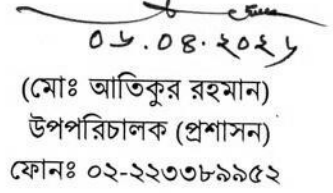 ০৬.০৪.২০২৬
(মোঃ আতিকুর রহমান)
উপপরিচালক (প্রশাসন)
ফোনঃ ০২-২২৩৩৮৯৯৫২